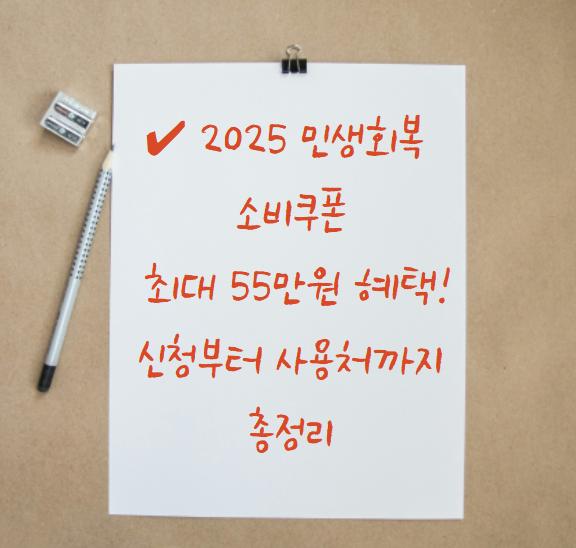 ✔ 2025 민생회복
소비쿠폰
최대 55만원 혜택!
신청부터 사용처까지
총정리